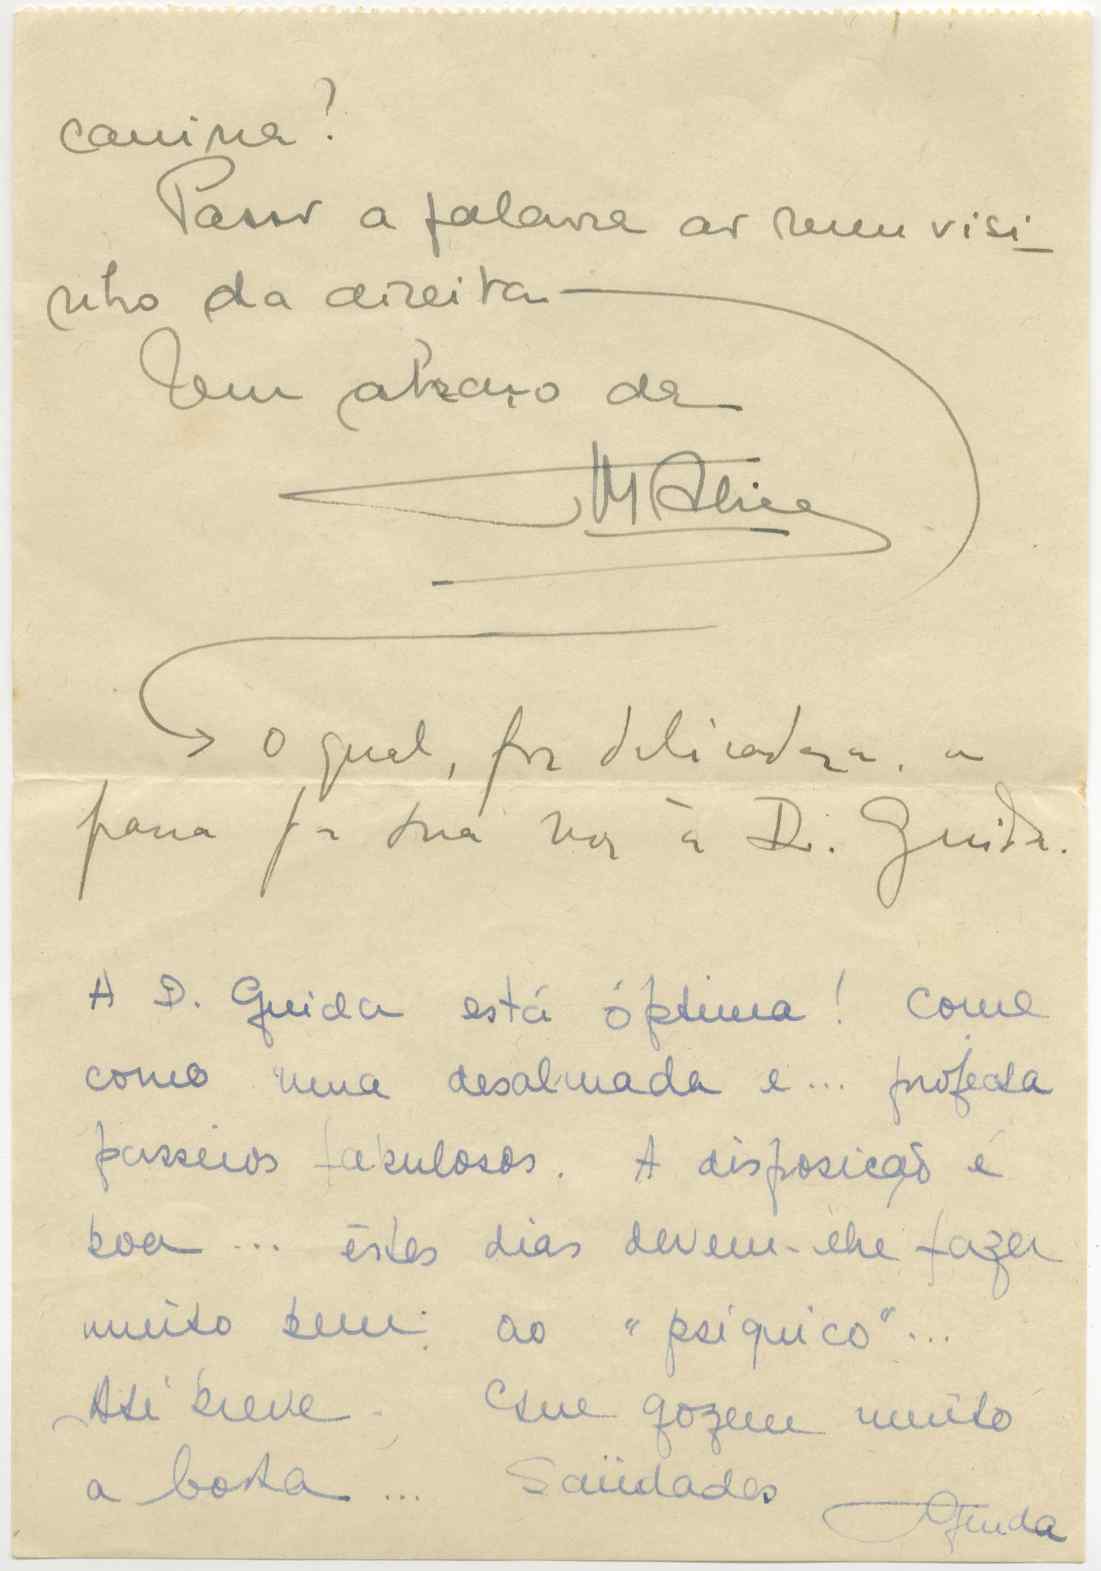 canina?
Passo a palavra ao meu visi-
nho da direita
Um abraço da
M Alice
o qual, por delicadeza, a
passa p a sua vez à D. Guida.
A D. Guida está óptima! Come
como uma desalmada e... projecta
passeios fabulosos. A disposição é
boa... êstes dias devem-lhe fazer
muito bem: ao "psiquico"...
Até breve. Que gozem muito
a bota... Saüdades Guida